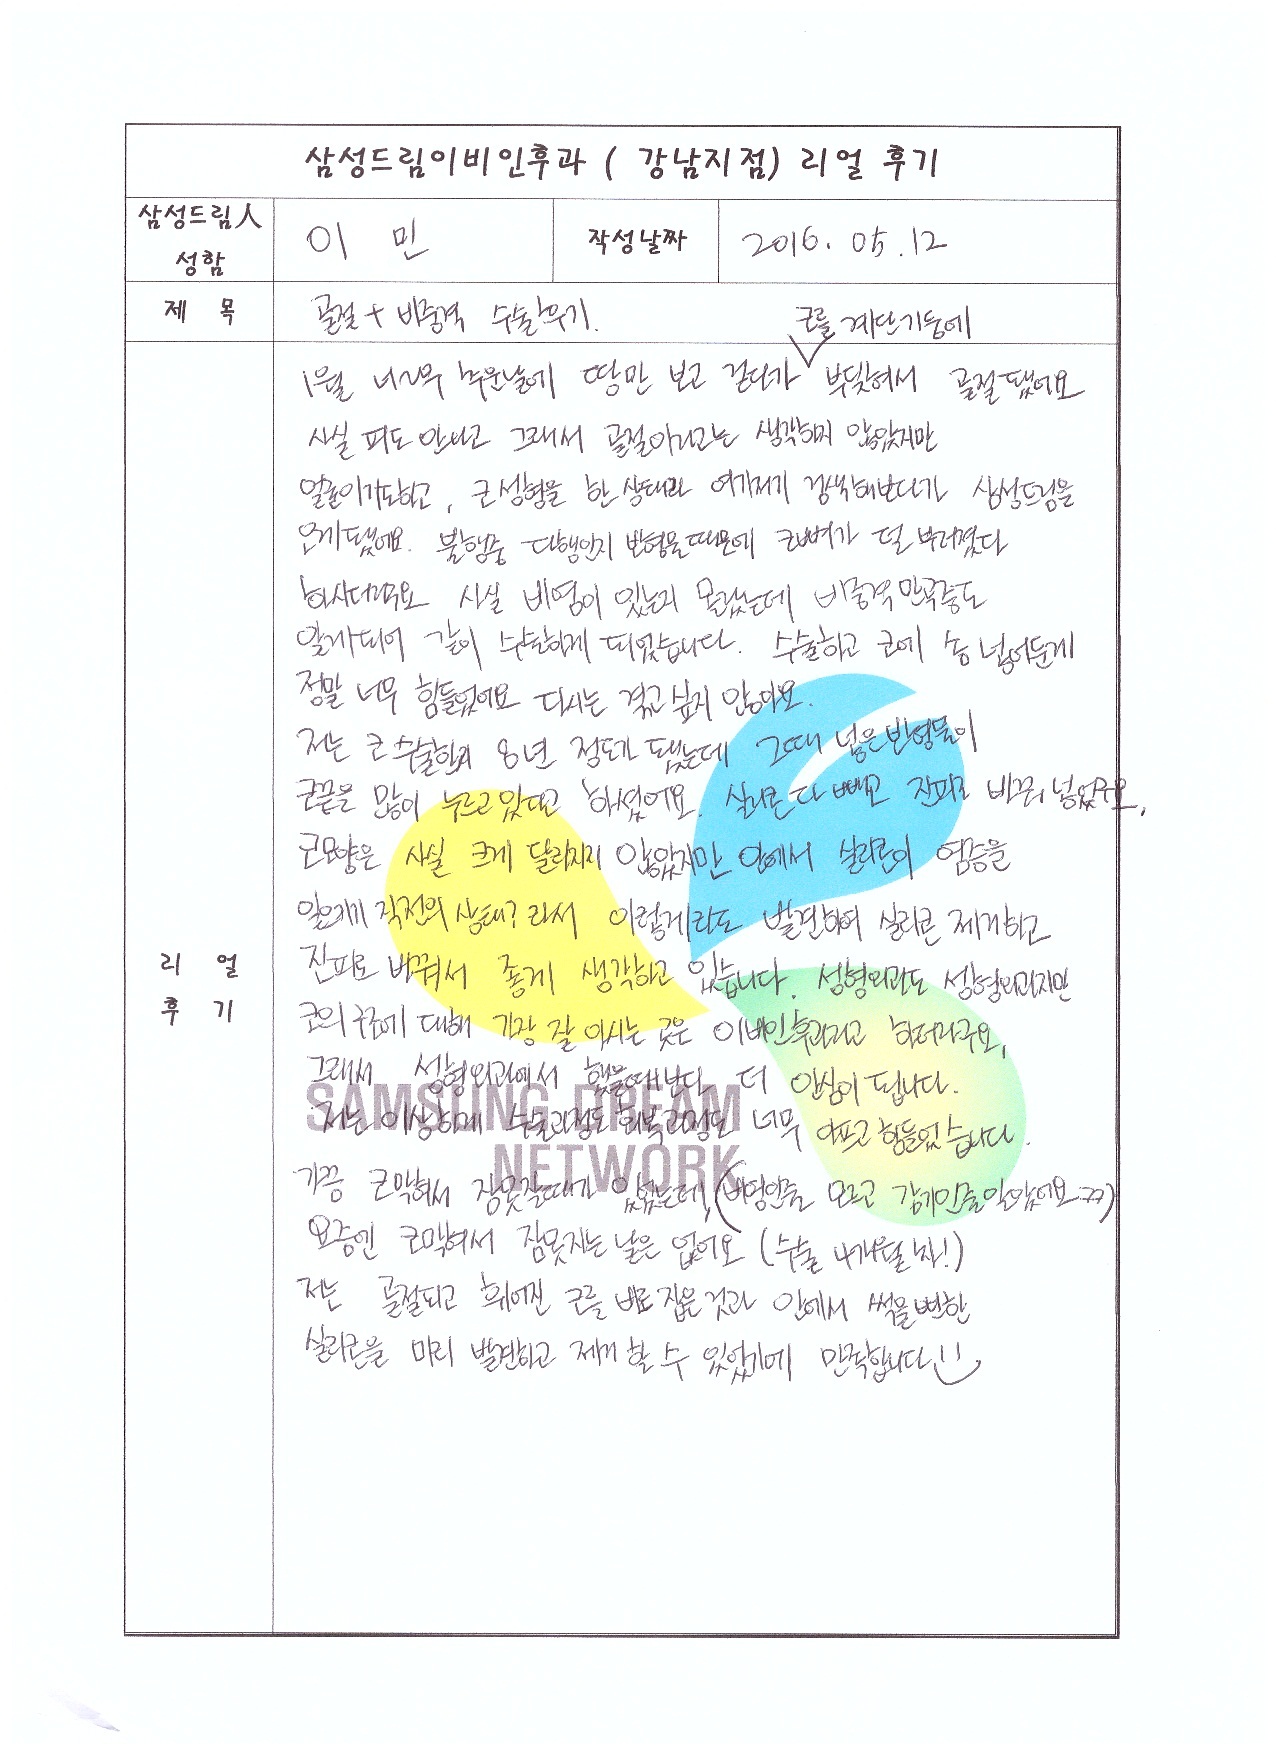 삼성드림이비인후과 ( 강남지점) 리얼 후기
삼성드림人
성함
이 민
작성날짜
2016. 05. 12
제 목
골절 + 비중격 수술후기.
코를 계단기둥에
1월 너~무 추운날에 땅만 보고 걷다가 부딪혀서 골절됐어요
사실 피도 안나고 그래서 골절이라고는 생각하지 않았지만
얼굴이기도하고, 코 성형을 한 상태라 여기저기 검색해보다가 삼성드림을
오게됐어요. 불행중 다행인지 보형물때문에 코뼈가 덜 부러졌다
하시더라구요 사실 비염이 있는지 몰랐는데 비중격 만곡증도
알게되어 같이 수술하게 되었습니다. 수술하고 코에 솜 넣어둔게
정말 너무 힘들었어요 다시는 겪고 싶지 않아요.
저는 코 수술한지 8년 정도가 됐는데 그때 넣은 보형물이
코끝을 많이 누르고있다고 하셨어요. 실리콘 다 빼고 진피로 바꿔 넣었구요,
코모양은 사실 크게 달라지지 않았지만 안에서 실리콘이 염증을
일으키기 직전의 상태? 라서 이렇게라도 발견하여 실리콘 제거하고
진피로 바꿔서 좋게 생각하고 있습니다. 성형외과도 성형외과지만
코의 구조에 대해 가장 잘 아시는 곳은 이비인후과라고 하더라구요,
그래서 성형외과에서 했을때보다 더 안심이 됩니다.
저는 이상하게 수술과정도 회복과정도 너무 아프고 힘들었습니다.
가끔 코막혀서 잠못잘때가 있었는데, (비염인줄 모르고 감기인줄알았어요ㅠㅠ)
요즘엔 코막혀서 잠못자는 날은 없어요 (수술 4개월 차!)
저는 골절되고 휘어진 코를 바로 잡은 것과 안에서 썩을 뻔한
실리콘을 미리 발견하고 제거 할 수 있었기에 만족합니다
리 얼
후 기
SAMSUNG DREAM
NETWORK